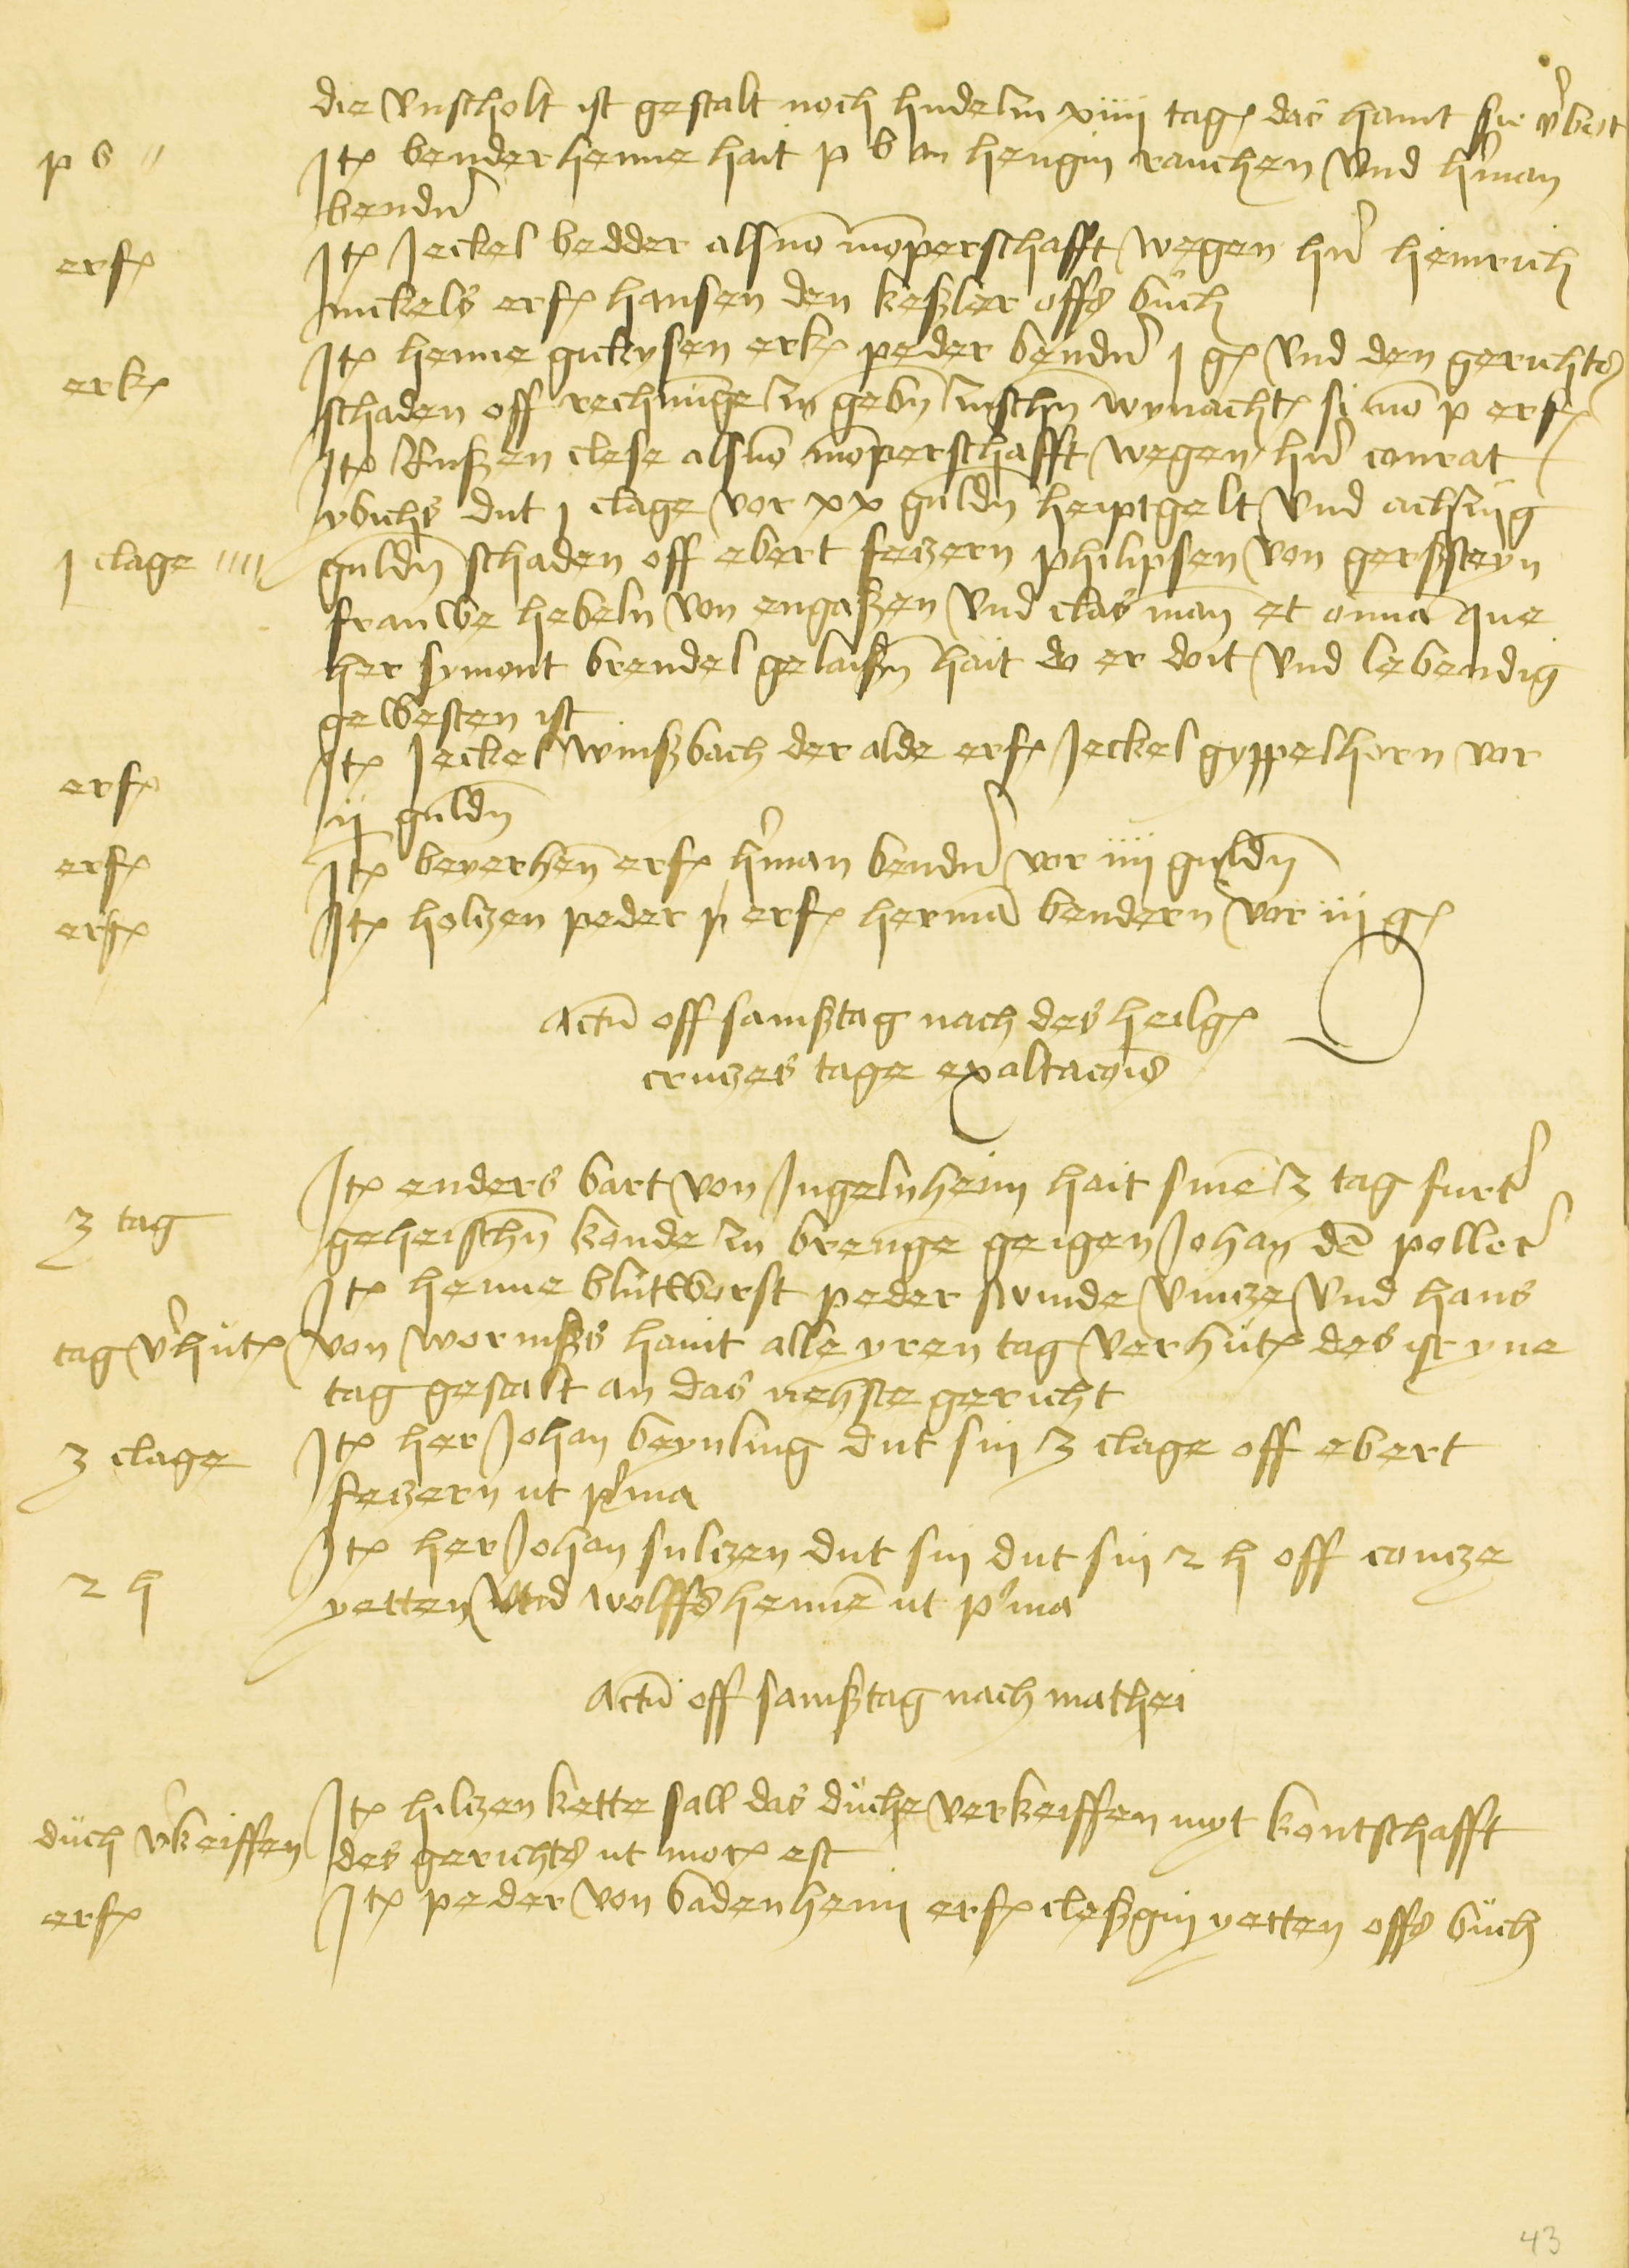 die vnscholt ist gestalt noch hudelin xiiii tag das haint sie v'bot
p b //
Jt bender henne hait p b an hengin rauchen vnd h'man
bend'
erf
Jt Jeckel bedder als vo mo͞perschafft wegen h'n heinrich
nickels erf hansen den keßler offs bůch
erk
Jt henne gickysen erk peder bend' j g vnd den gerichts
schaden off rechnu͞ge zu geb͞n zusch͞n wynacht si no͞ p erf
Jt Rußen clese als vo͞ mo͞perschafft wegen h'n conrat
ybichs dut j clage vor xx guld͞n heiptgelt vnd achtzig
j clage iiii
guld͞n schaden off ebert feczern philipsen von gerßsteyn
frauwe hebeln von engaßen vnd clas man et omnia que
her symont brendel gelaiß͞n hait do er doit vnd lebendig
gewesten ist
erf
Jt Jeckel winßbach der alde erf Jeckel gyppelhorn vor
ij guld͞n
erf
Jt beyerhen͞ erf h'man bend' vor iiii guld͞n
erf
Jt holczen peder p erf herma͞ bendern vor iii g
Actu͞ off samßtag nach des heilg
cruczes tage exaltacio͞is
3 tag
Jt enders bart von Jngelnheim hait sine͞ 3 tag furt'
geheisch͞n konde zu brenge geigen Johan de͞ poller
Jt henne blůtworst peder swinde vincze vnd hans
tag v'hut
von wormßs haint alle yren tag verhůt des ist yne
tag gestalt an das nehste gericht
3 clage
Jt her Johan beynling dut sin 3 clage off ebert
feczern ut p'ma
Jt her Johan sulczen dut sin dut sin 2 h off contze
2 h
yetten vnd wolffs henne͞ ut p'ma
Actu͞ off samßtag nach mathei
Jt hilczen kette sall das důche verkeiffen myt kontschafft
důch v'keiffen
des gerichts ut mor est
erf
Jt peder von badenheim erf cleßgin yetten offs bůch
43